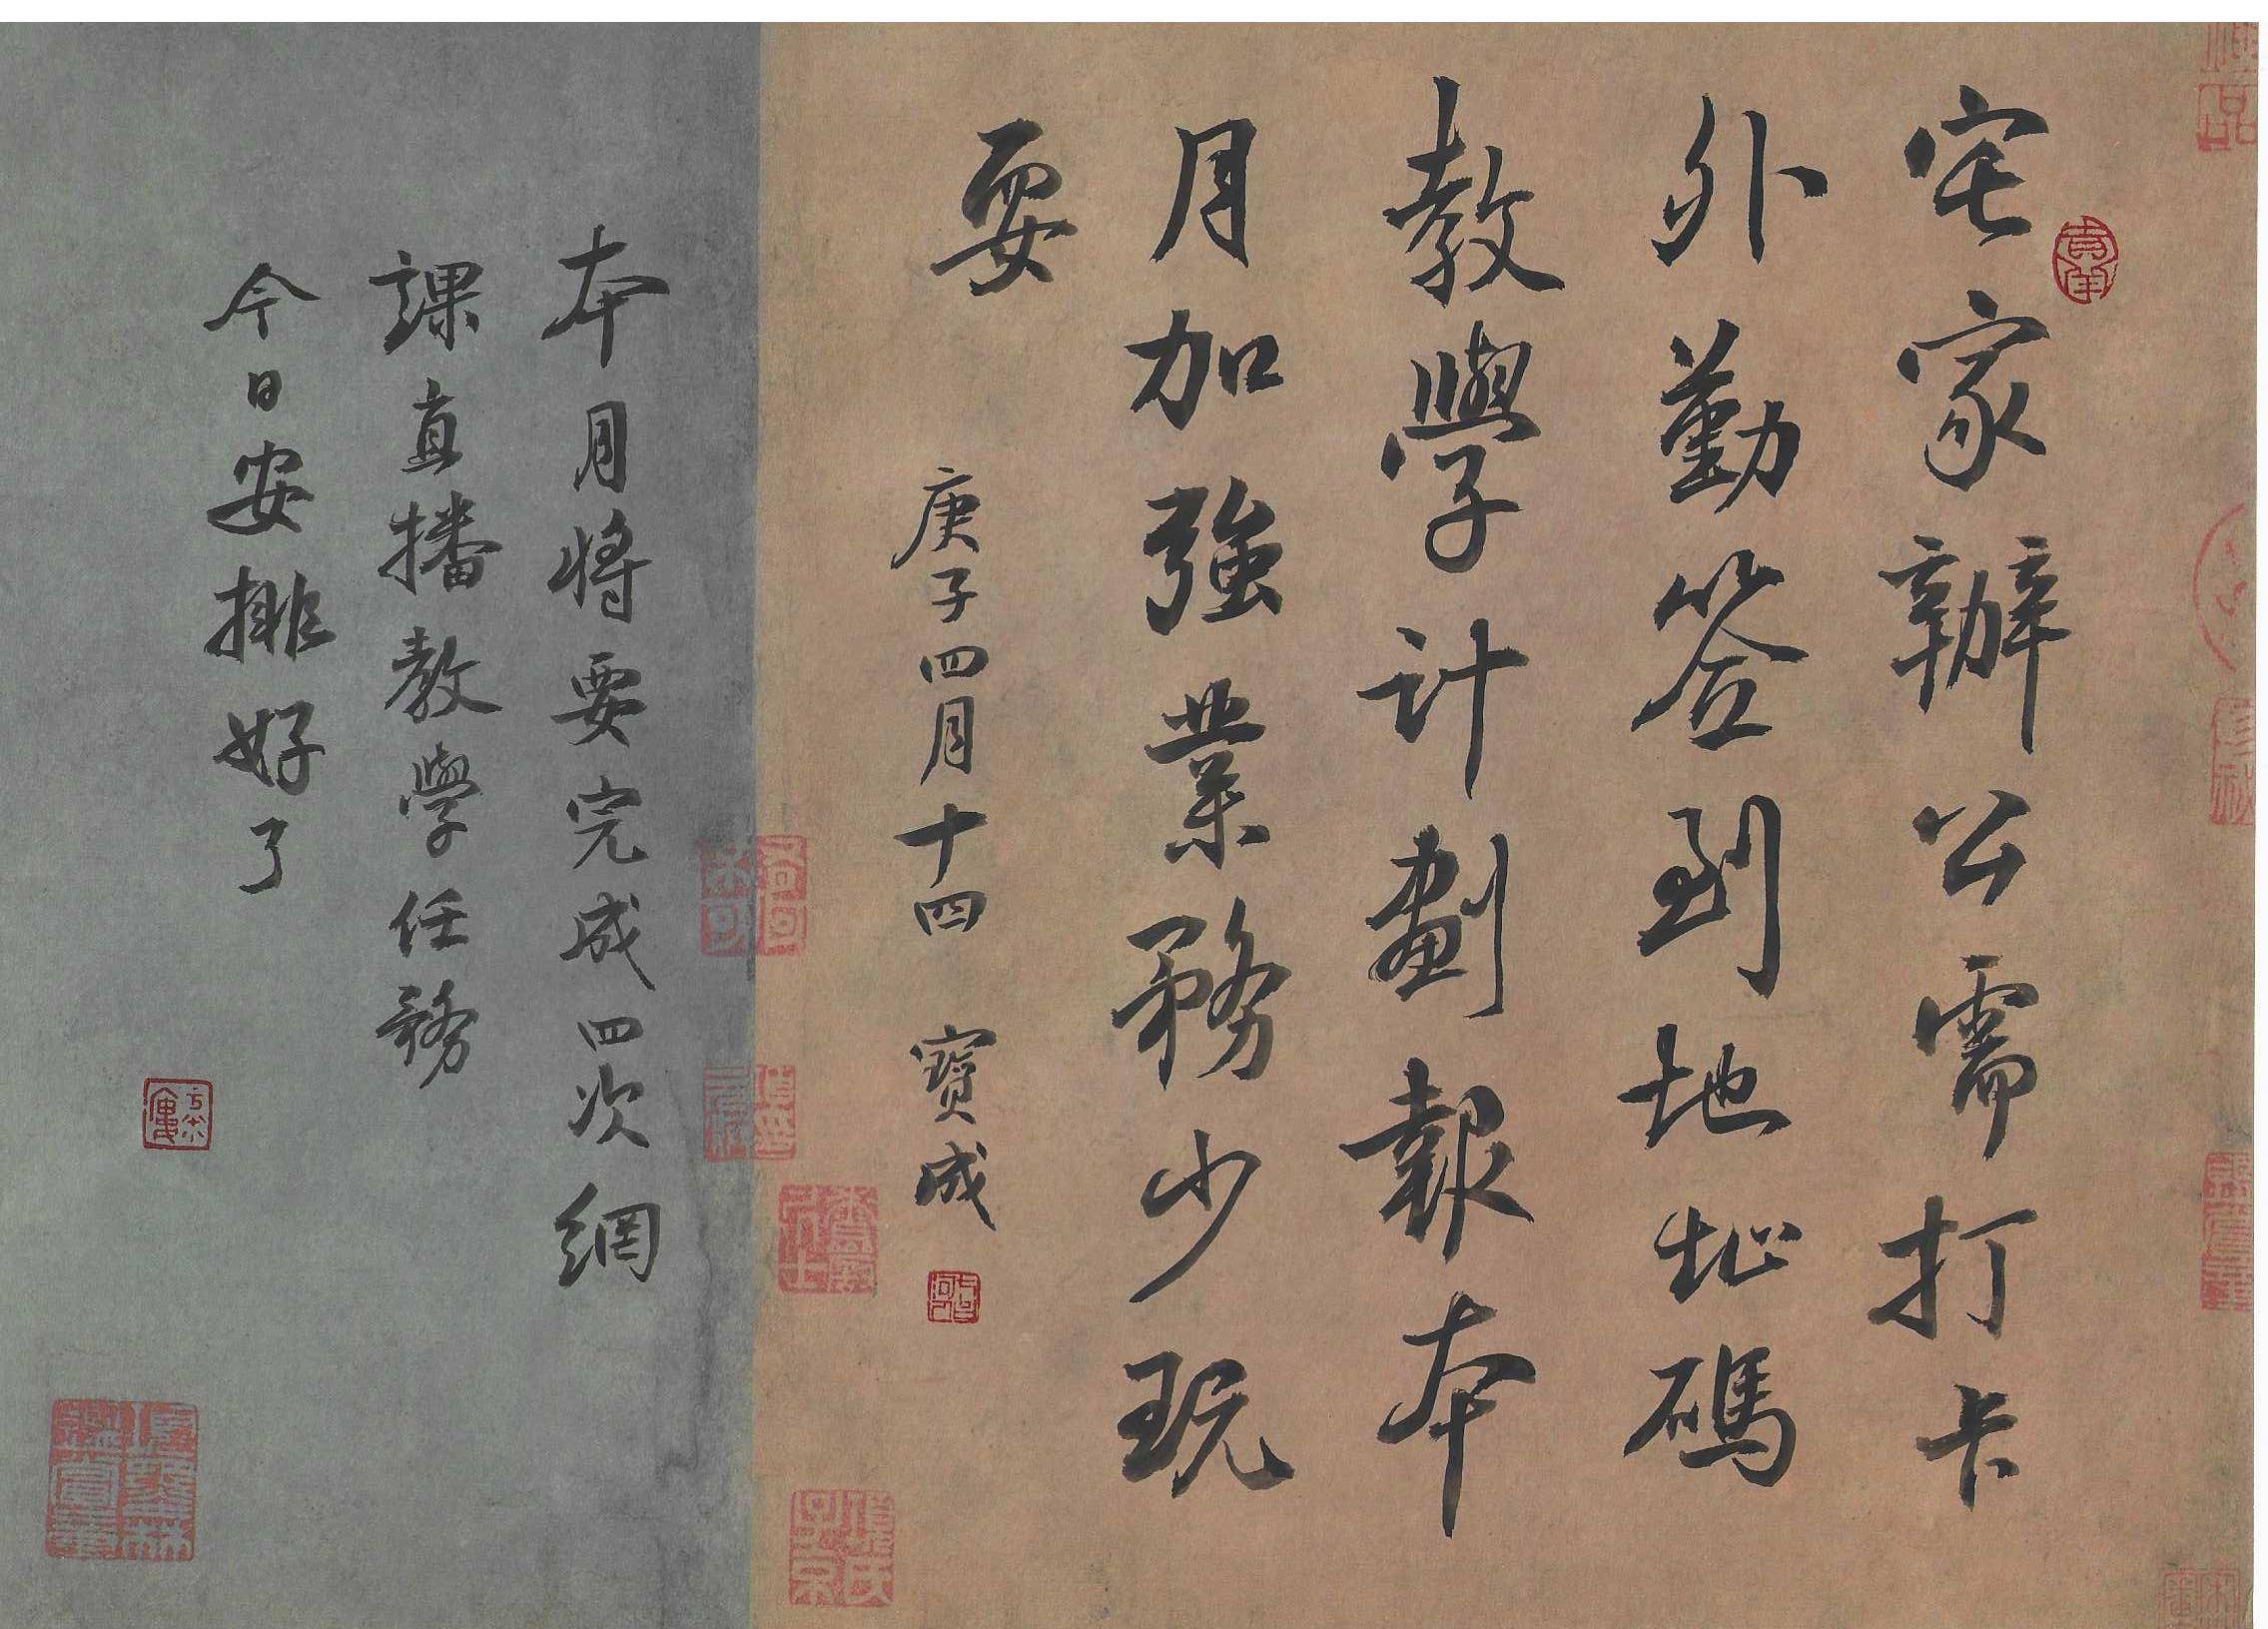 宅家辦公需打卡
外勤簽到地址碼
教學計劃報本
月加強業務少玩
耍
庚子四月十四 寶成
本月將要完成四次網
課直播教學任務
今日安排好了